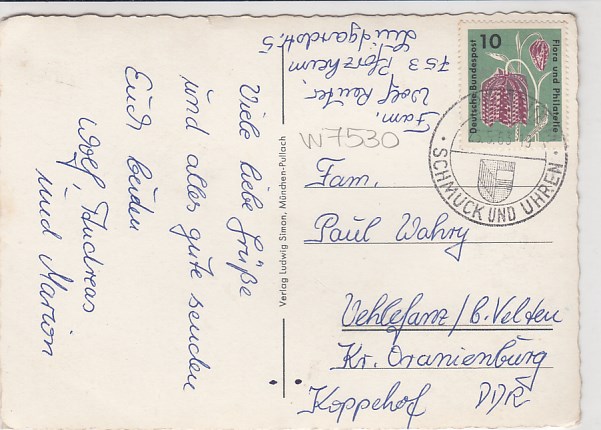 Viele liebe Grüße
und alles gute senden
Euch beiden
Wolf, Andreas
und Marion
Fam.
Wolf Reuter
753 Pforzheim
Luidgardstr. 5
W7530
Verlag Ludwig Simon, München-Pullach
10
Deutsche Bundespost
Flora und Philatelie
SCHMUCK UND UHREN
Fam.
Paul Wahry
Vehlefanz / b. Velten
Kr. Oranienburg
Koppehof DDR